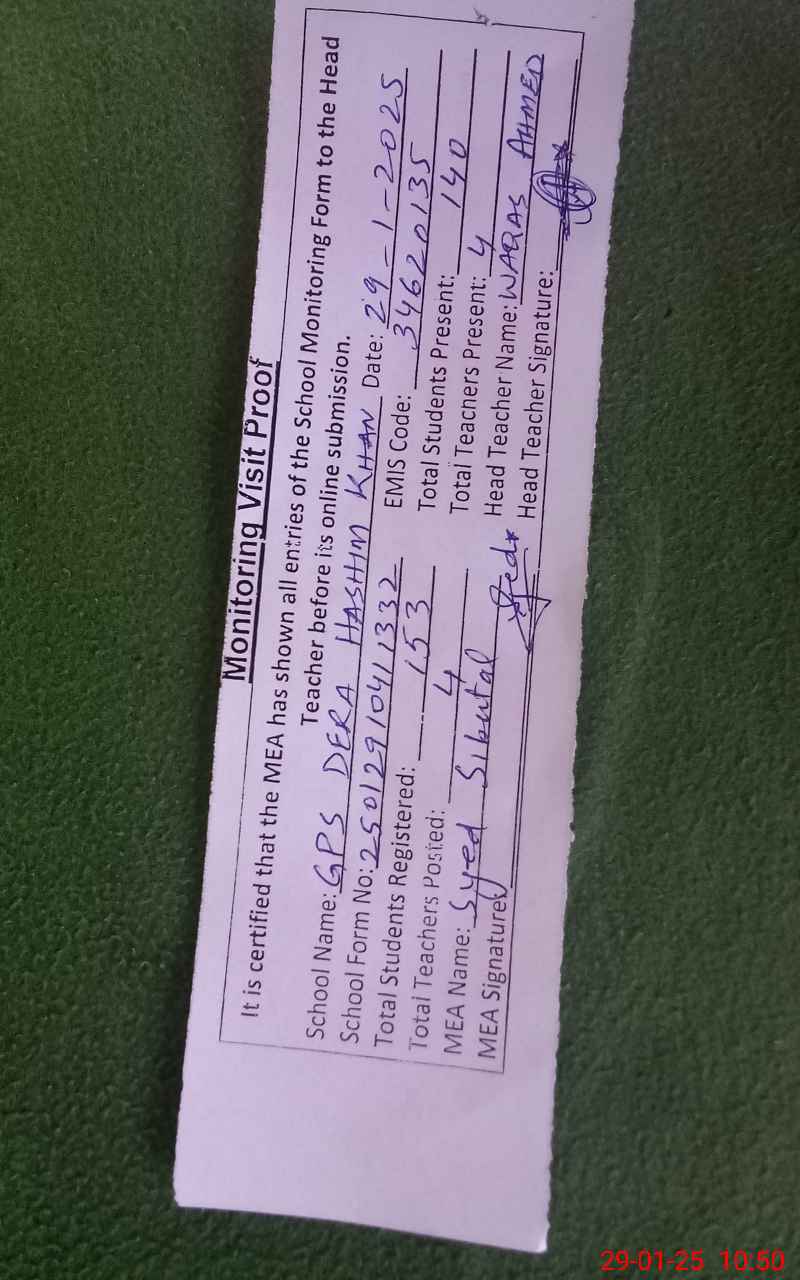 Monitoring Visit Proof
It is certified that the MEA has shown all entries of the School Monitoring Form to the Head
Teacher before its online submission.
School Name: GPS DERA HASHIM KHAN Date: 29-1-2025
School Form No: 25012910411332 EMIS Code: 34620135
Total Students Registered: 153 Total Students Present: 140
Total Teachers Posted: 4 Total Teachers Present: 4
MEA Name: Syed Sibutal Head Teacher Name: WAQAS AHMED
MEA Signature: Head Teacher Signature:
29-01-25 10:50